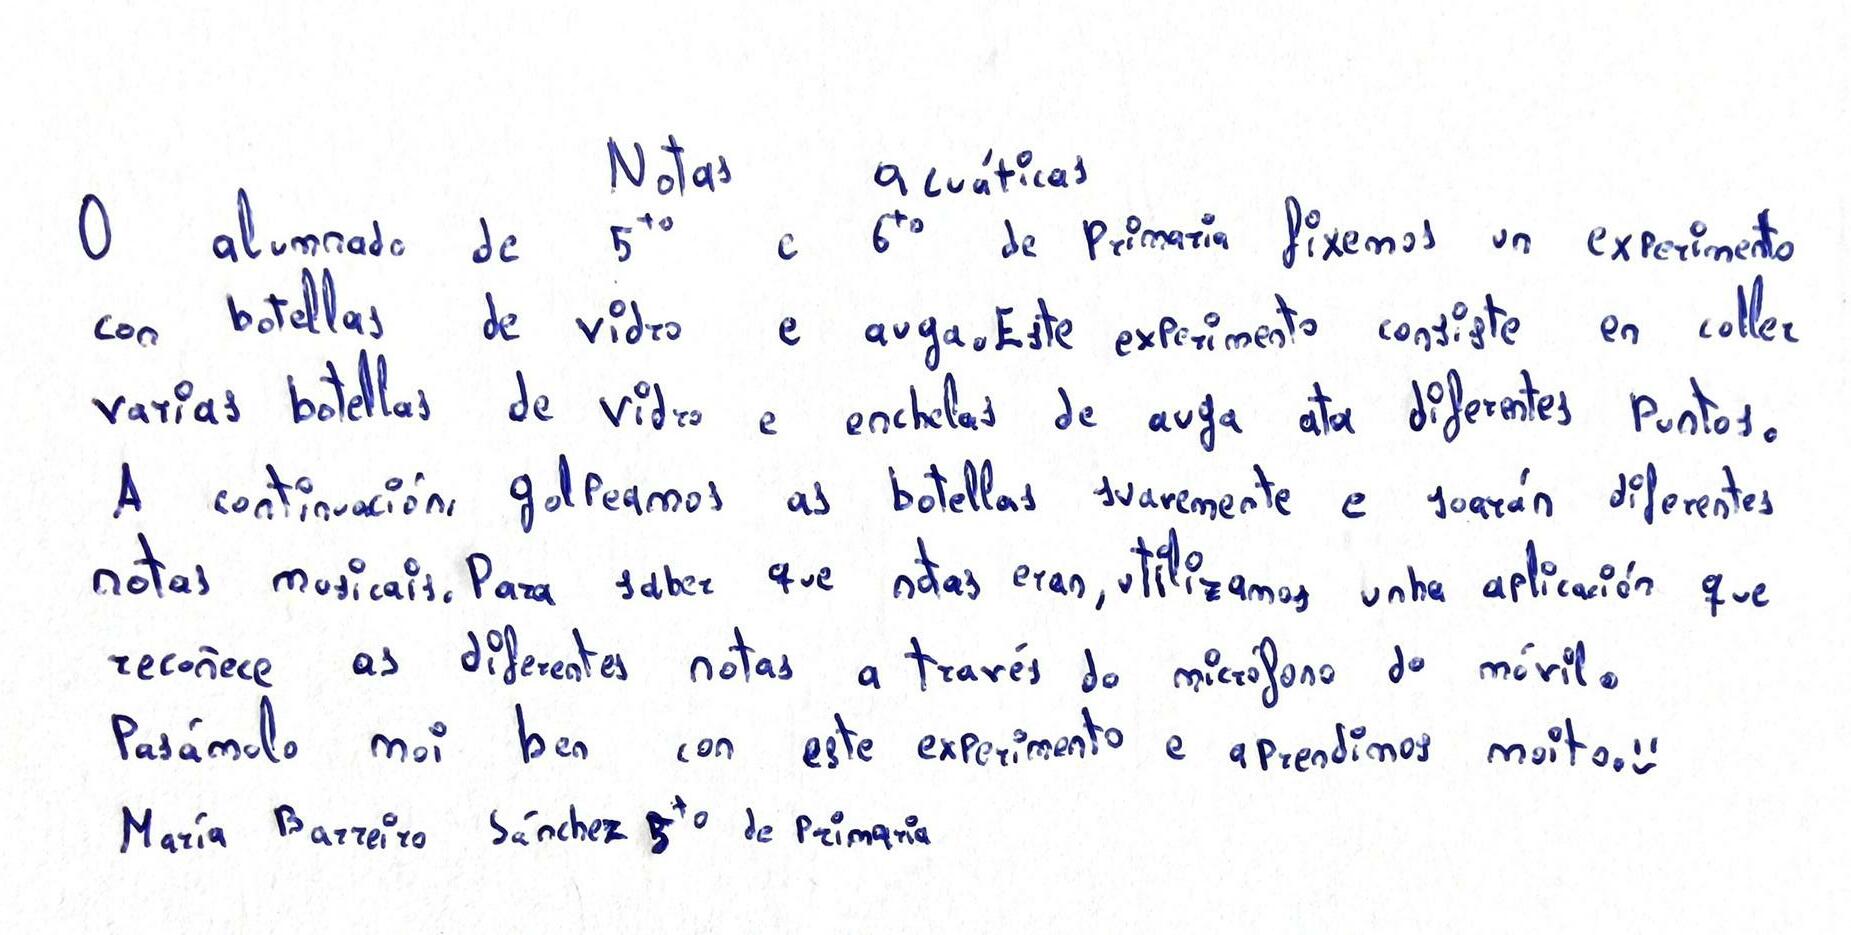 Notas acuáticas
O alumnado de 5to e 6to de Primaria fixemos un experimento
con botellas de vidro e auga. Este experimento consiste en coller
varias botellas de vidro e enchelas de auga ata diferentes puntos.
A continuación, golpeamos as botellas suavemente e soarán diferentes
notas musicais. Para saber que notas eran, utilizamos unha aplicación que
recoñece as diferentes notas a través do micrófono do móvil.
Pasámolo moi ben con este experimento e aprendimos moito. Ü
María Barreiro Sánchez 5to de Primaria